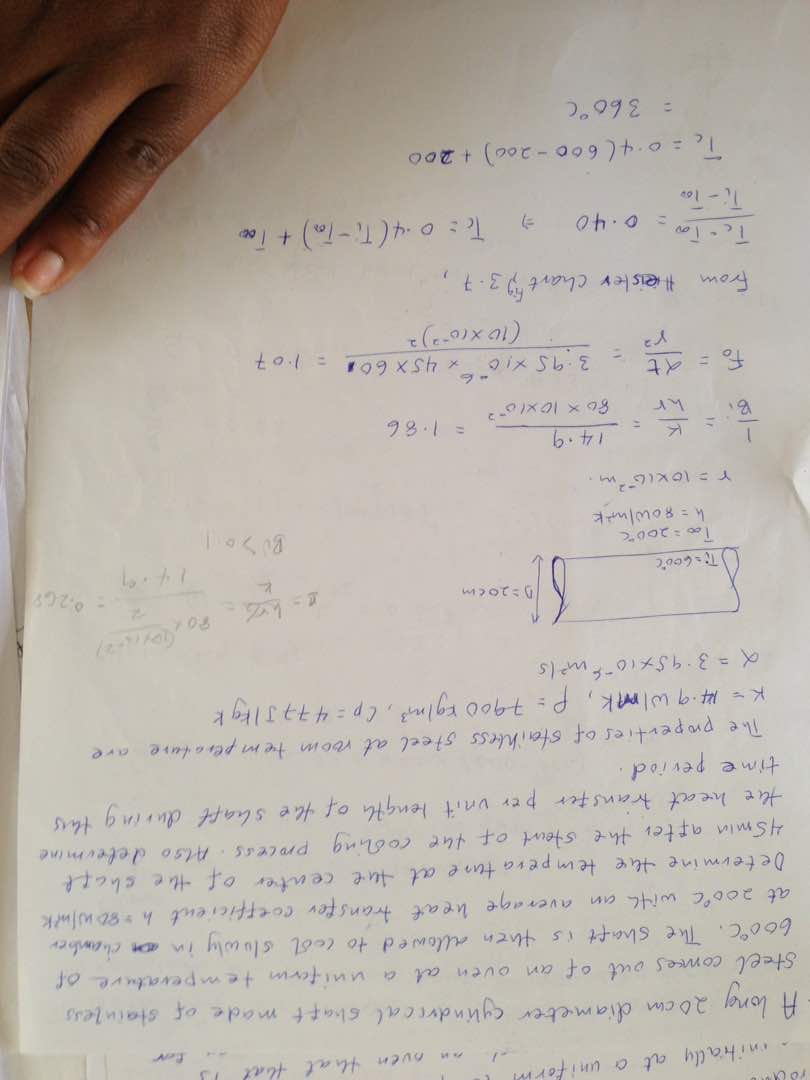 initially at a uniform
an oven that is
A long 20cm diameter cylindrical shaft made of stainless
steel comes out of an oven at a uniform temperature of
600°C. The shaft is then allowed to cool slowly in chamber
at 200°C with an average heat transfer coefficient h=80W/m²K
Determine the temperature at the center of the shaft
45min after the start of the cooling process. Also determine
the heat transfer per unit length of the shaft during this
time period.
The properties of stainless steel at room temperature are
K = 14.9 W/mK, ρ = 7900 kg/m³, Cp = 477 J/kgK
α = 3.95×10⁻⁶ m²/s
D=20cm
Ti=600°C
T∞ = 200°C
h = 80W/m²K
r = 10×10⁻² m.
= hr/2 / K = 80×(10×10⁻²)/2 / 14.9 = 0.268
Bi > 0.1
1/Bi = K/hr = 14.9 / 80×10×10⁻² = 1.86
Fo = αt/r² = 3.95×10⁻⁶ × 45×60 / (10×10⁻²)² = 1.07
From Heisler chart, fig 3.7,
Tc-T∞ / Ti-T∞ = 0.40 ⇒ Tc = 0.4(Ti-T∞) + T∞
Tc = 0.4(600-200) + 200
= 360°C